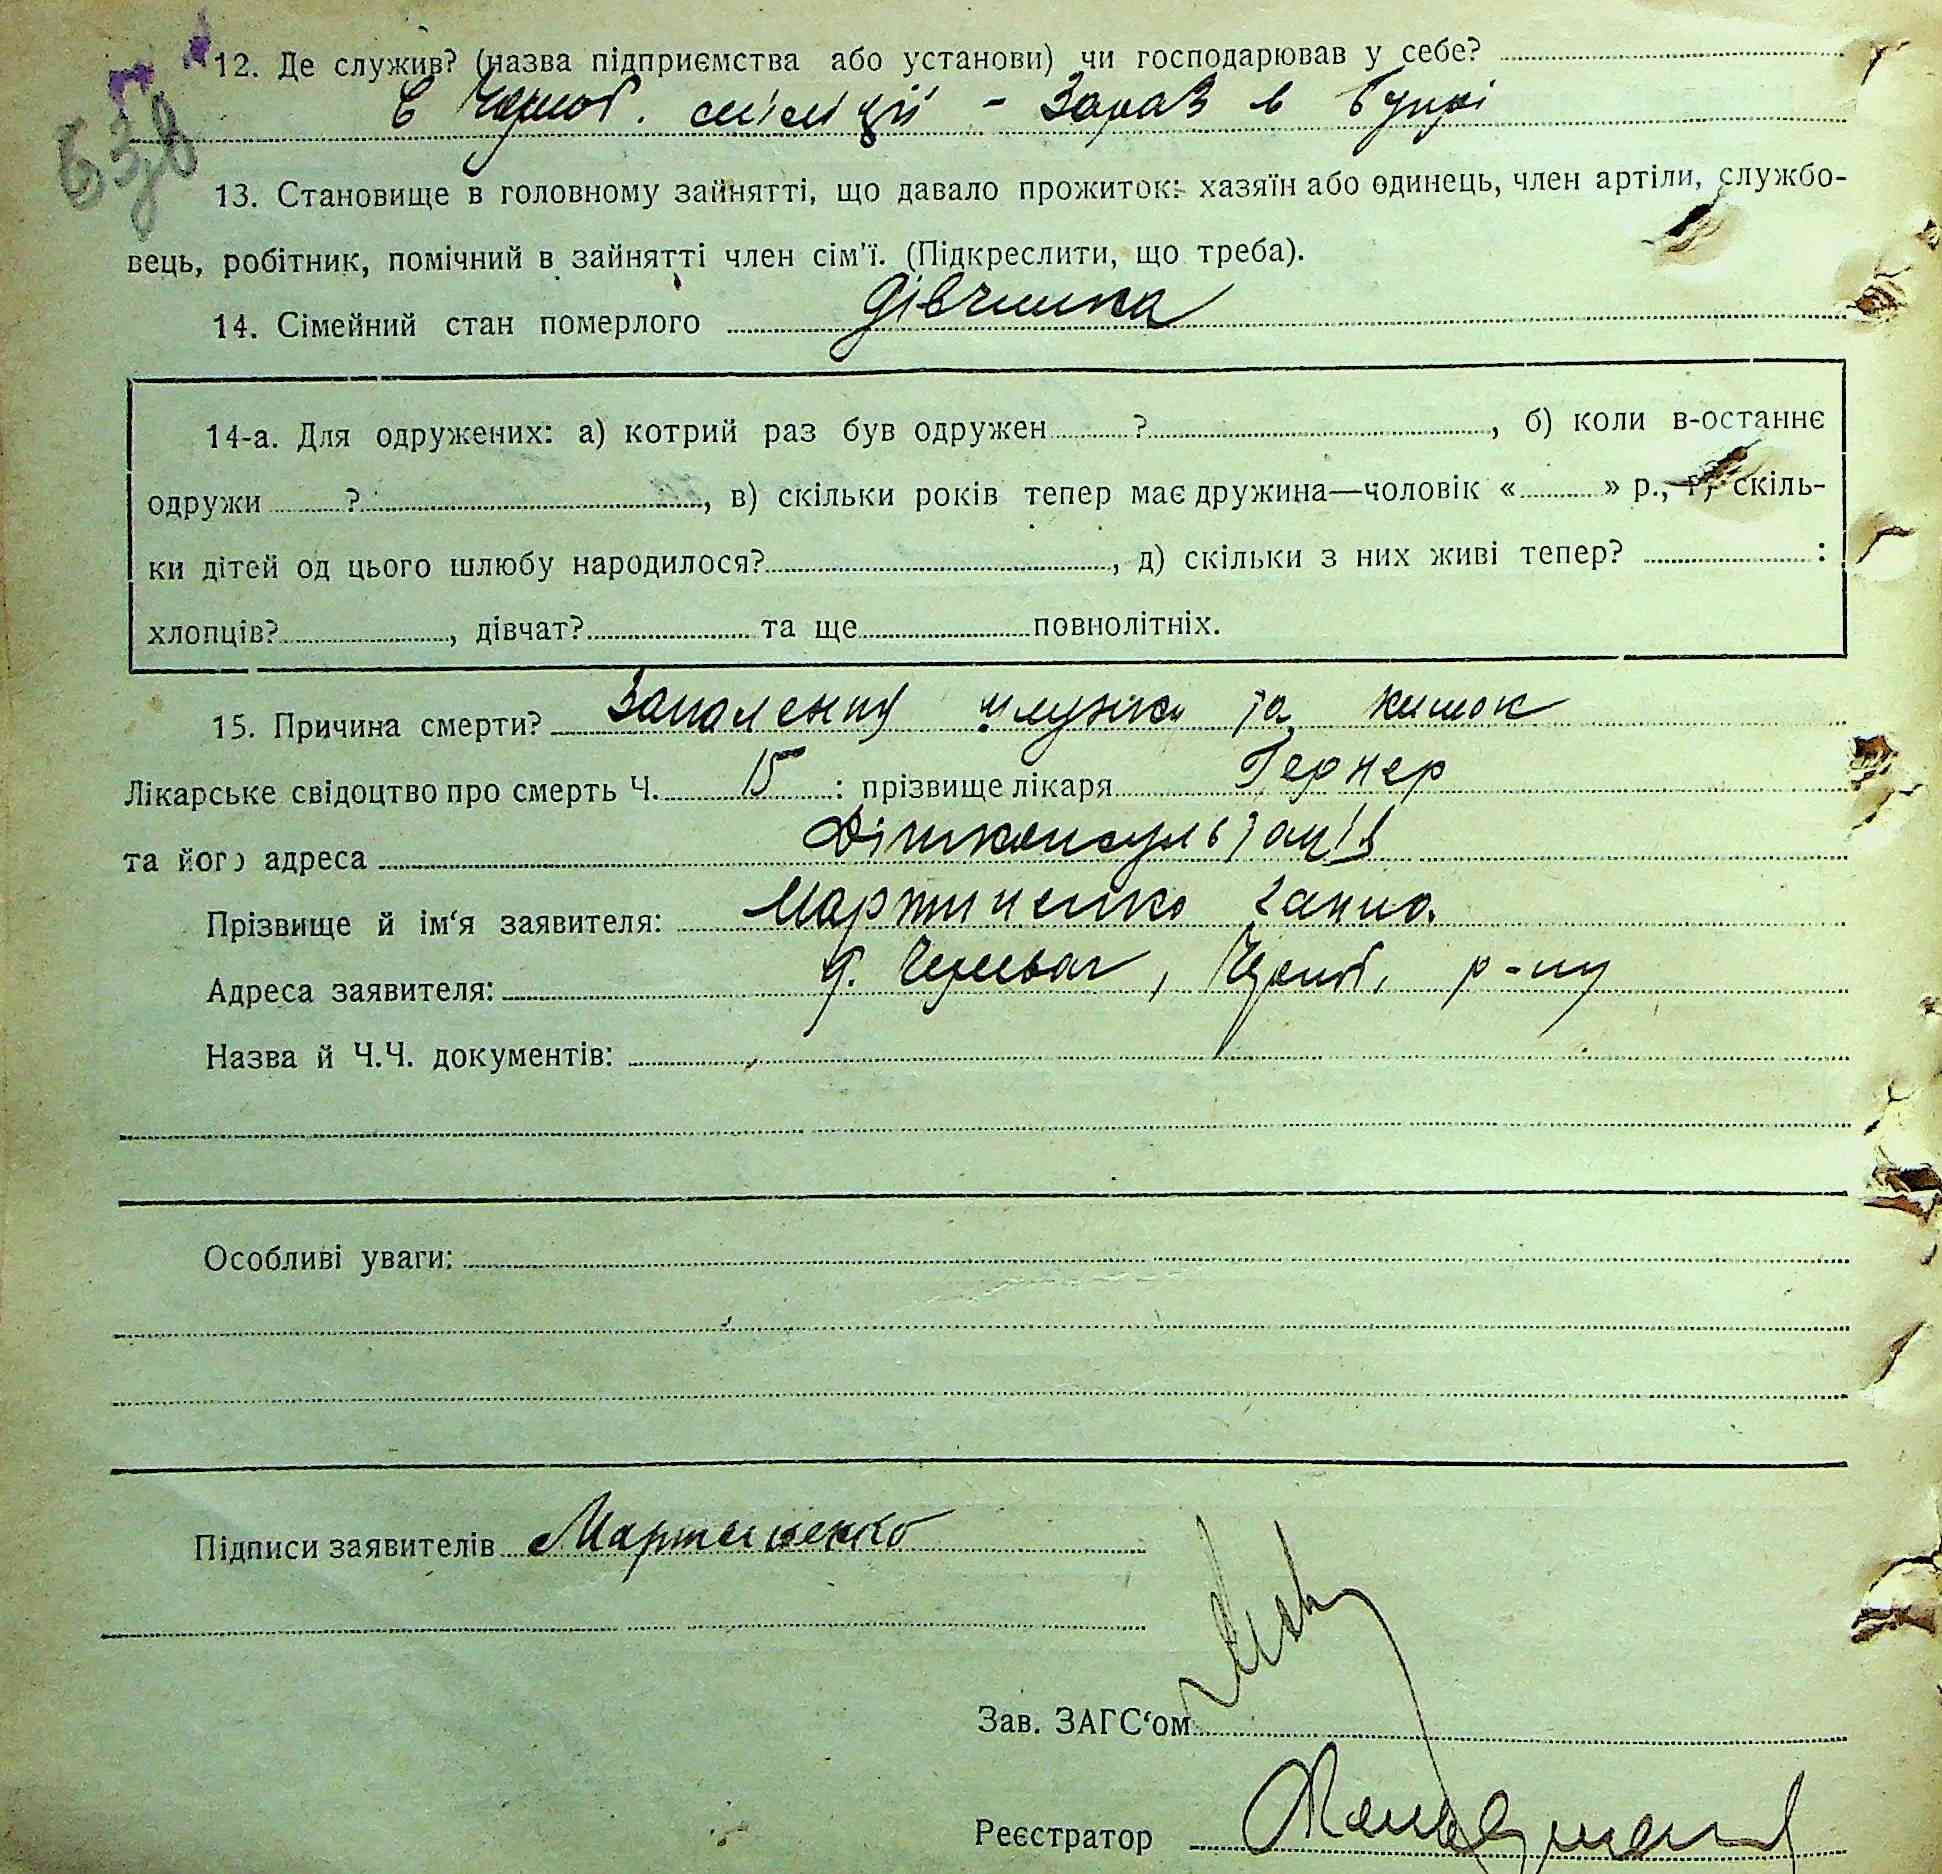 12. Де служив? (назва підприємства або установи) чи господарював у себе?
В Чорноб. міліції - Зараз в Бупрі
63зв
13. Становище в головному зайнятті, що давало прожиток: хазяїн або одинець, член артіли, службо-
вець, робітник, помічний в зайнятті член сім'ї. (Підкреслити, що треба).
14. Сімейний стан померлого дівчинка
14-а. Для одружених: а) котрий раз був одружен ? , б) коли в-останнє
одружи ? , в) скільки років тепер має дружина—чоловік « » р., г) скіль-
ки дітей од цього шлюбу народилося? , д) скільки з них живі тепер? :
хлопців? , дівчат? та ще повнолітніх.
15. Причина смерти? Запалення шлунку та кишок
Лікарське свідоцтво про смерть Ч. 15 : прізвище лікаря Геднер
та його адреса Дітконсультація
Прізвище й ім‘я заявителя: Мартиненко Ганна.
Адреса заявителя: с. Черевач, Чорноб. р-ну
Назва й Ч.Ч. документів:
Особливі уваги:
Підписи заявителів Мартиненко
Зав. ЗАГС‘ом
Реєстратор